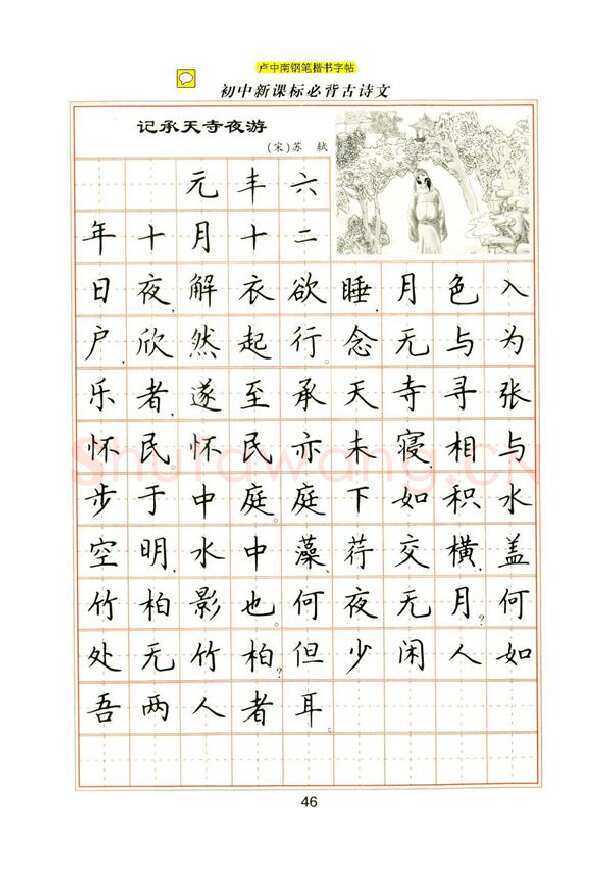 卢中南钢笔楷书字帖
初中新课标必背古诗文
记承天寺夜游
(宋)苏 轼
元丰六
年十月十二
日夜,解衣欲睡,月色入
户,欣然起行。念无与为
乐者,遂至承天寺寻张
怀民怀民亦未寝,相与
步于中庭。庭下如积水
空明,水中藻、荇交横,盖
竹柏影也。何夜无月?何
处无竹柏?但少闲人如
吾两人者耳。
Shufawang.CN
46